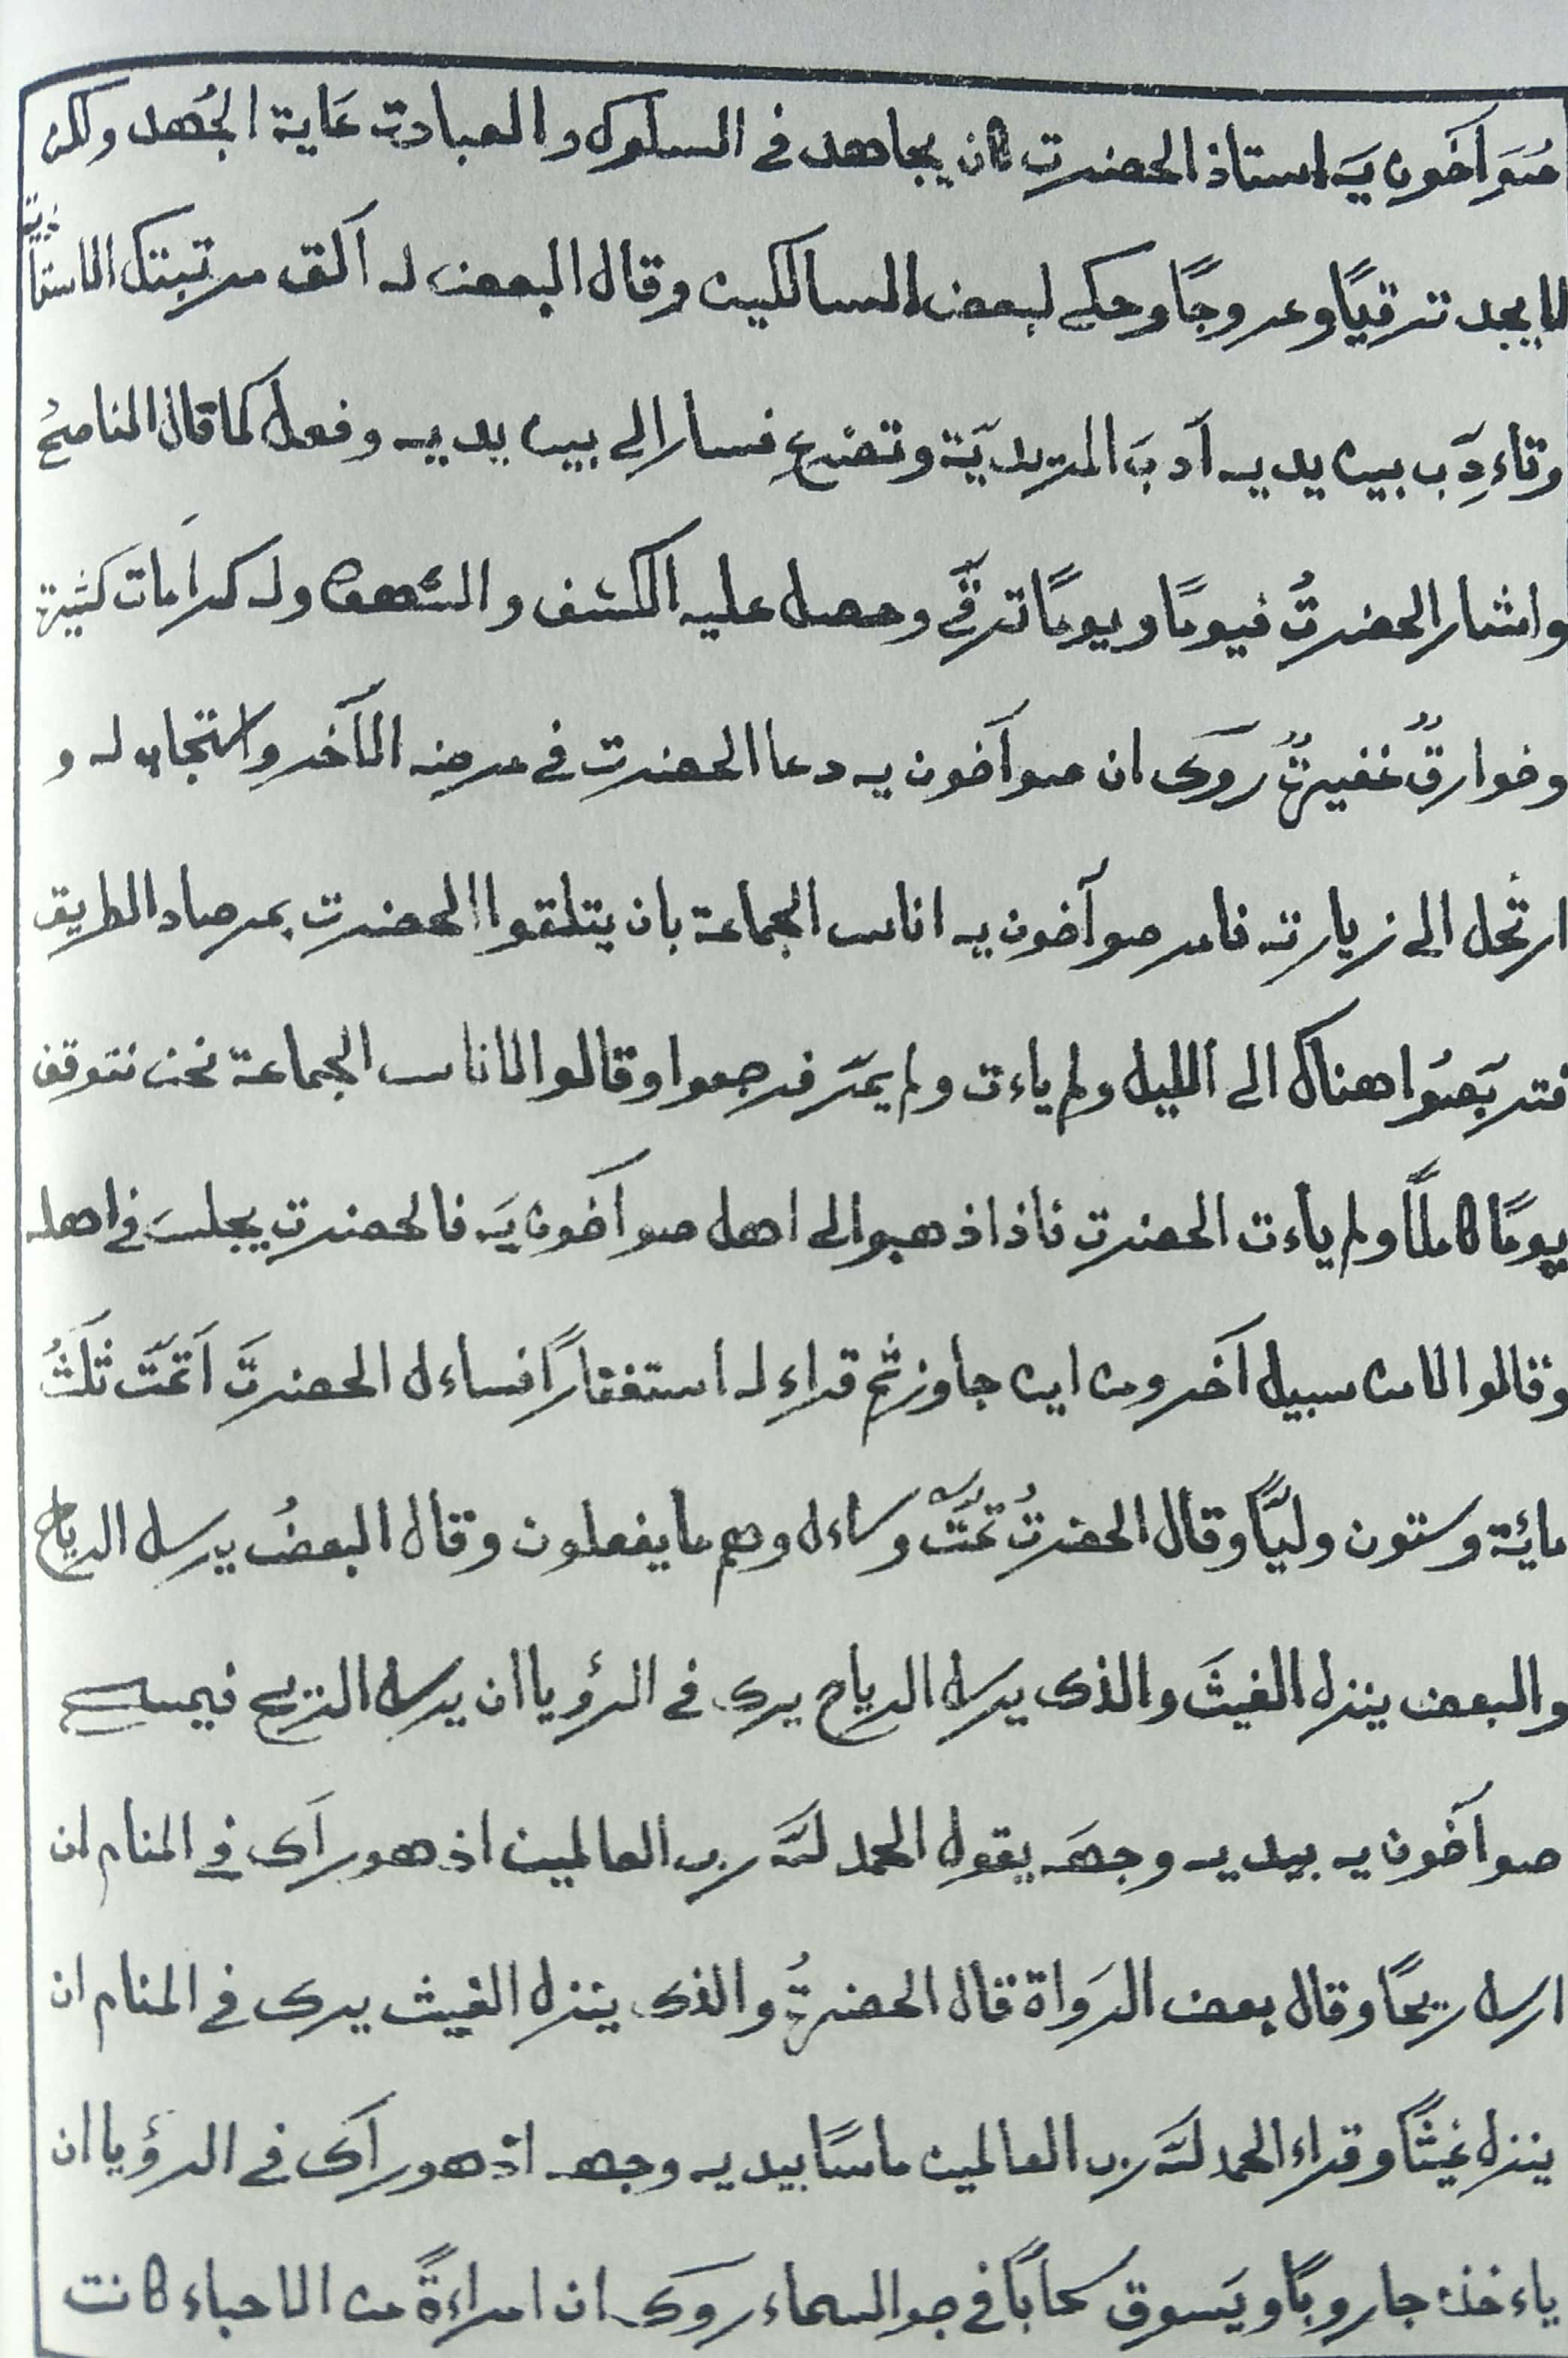 صَوَ آخون يَه استاذ الحضرت كان يجاهد فى السلوك والعبادت غاية الجُهد ولكن
لا يجد ترقيًا وعروجًا وحكى لبعض السالكين وقال البعض له اَلق مرتبتك الاستاذية
وتاءدَّب بين يديه اَدبَ المريديَّة وتضرع فسار الى بين يديه وفعل كما قال الناصحُ
واشار الحضرتُ فيومًا ويومًا ترقَّى وحصل عليه الكشف والشهود وله كرامات كثيرة
وخوارقٌ غفيرةٌ روى ان صو آخون يه دعا الحضرت فى مرضه الآخر واستجاب له و
ارتحل الى زيارته فامر صو آخون يه اناس الجماعة بان يتلقوا الحضرت بمرصاد الطريق
فتربّصُوا هناك الى الليل ولم ياءت ولم يمرّ فرجعوا وقالوا لاناس الجماعة نحن نتوقف
يومًا كاملًا ولم ياءت الحضرت فاذا ذهبوا الى اهل صو آخون يَه فالحضرت يجلسَ فى اهله
وقالوا لا من سبيل آخر ومن اين جاوز ثم قراء له استغفارًا فساءل الحضرتَ اَتمَّت ثلثُ
مائة وستون وليًّا وقال الحضرتُ تمَّت وساءل وهم ما يفعلون وقال البعضُ يرسل الرياح
والبعض ينزل الغيثَ والذى يرسل الرياح يرى فى الرؤيا ان يرسل الريح فيمسح
صو آخون يه بيديه وجهَه يقول الحمد للّه رب العالمين اذ هو رآى فى المنام ان
ارسل ريحًا وقال بعض الرَواة قال الحضرتُ والذى ينزل الغيث يرى فى المنام ان
ينزل غيثًا وقراء الحمد للّه رب العالمين ماسًا بيديه وجهه اذ هو رآى فى الرؤيا ان
ياءخذ جاروبًا ويَسوق سحابًا فى جو السماء روى ان امراءةً من الاحباء كانت